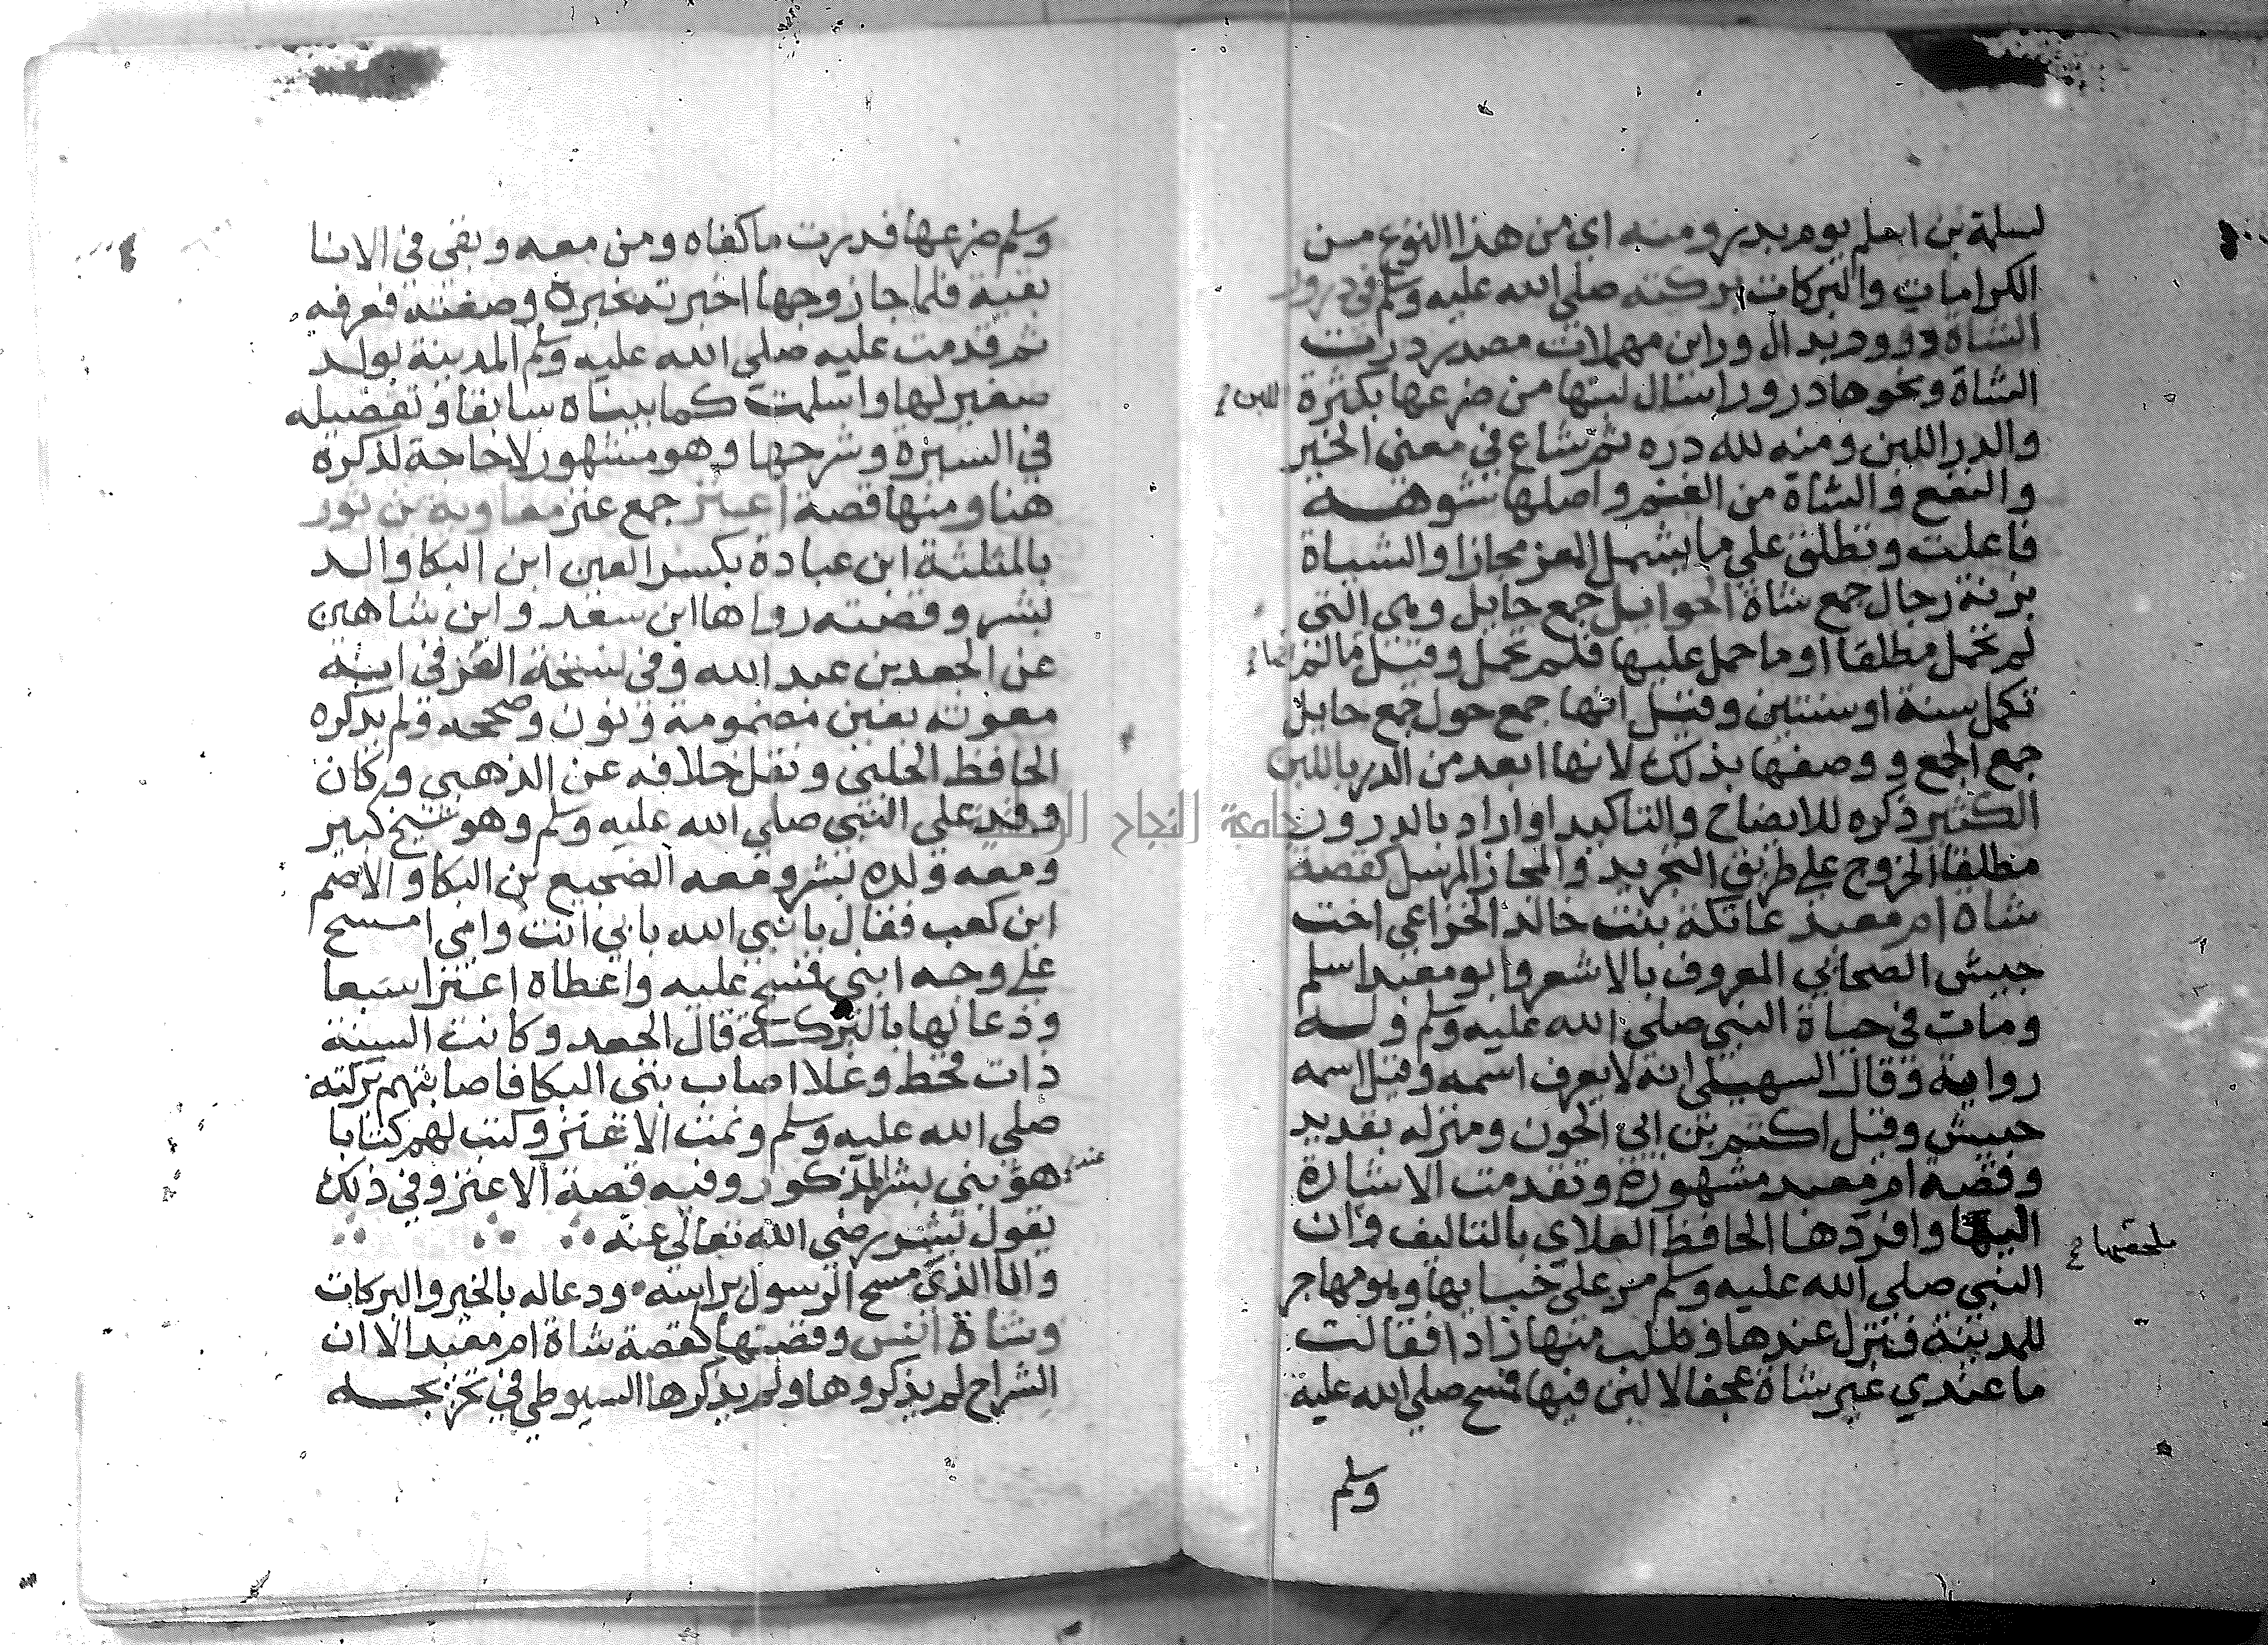 لسلمة بن اسلم يوم بدر ومنه اي من هذا النوع من
الكرامات والبركات بركته صلى الله عليه وسلم في درور
الشاة ودرود بدال وراين مهملات مصدر درت
الشاة ونحوها درورا سال لبنها من ضرعها بكثرة
اللبن
والدر اللبن ومنه لله دره ثم شاع في معنى الخير
والنفع والشاة من الغنم واصلها شوهه
فاعلت وتطلق على ما يشمل المعز مجازا والشياة
بزنة رجال جمع شاة الحوايل جمع حايل وهي التي
لم تحمل مطلقا او ما حمل عليها فلم تحمل وقيل مالم
تكمل سنة او سنتين وقيل انها جمع حول جمع حايل
جمع الجمع ووصفها بذلك لانها ابعد من الدر باللبن
الكثير ذكره للايضاح والتاكيد او اراد بالدرور
مطلقا الخروج على طريق التجريد والمجاز المرسل كقصة
شاة ام معبد عاتكة بنت خالد الخزاعي اخت
حبيش الصحابي المعروف بالاشعر وابو معبد اسلم
ومات في حياة النبي صلى الله عليه وسلم وله
رواية وقال السهيلي انه لا يعرف اسمه وقيل اسمه
حبيش وقيل اكتم بن ابي الجون ومنزله بقديد
وقصة ام معبد مشهورة وتقدمت الاشارة
اليها وافردها الحافظ العلاي بالتاليف وان
ملخصها
النبي صلى الله عليه وسلم مر على خبابها وهو مهاجر
للمدينة فنزل عندها وطلب منها زادا فقالت
ما عندي غير شاة عجفا لا لبن فيها فمسح صلى الله عليه
وسلم
وسلم ضرعها فدرت ما كفاه ومن معه وبقى في الانا
بقية فلما جا زوجها اخبرته خبره وصفته فعرفه
ثم قدمت عليه صلى الله عليه وسلم المدينة بولد
صغير لها واسلمت كما بيناه سابقا وتفصيله
في السيرة وشرحها وهو مشهور لا حاجة لذكره
هنا ومنها قصة اعنز جمع عنز معاوية بن ثور
بالمثلثة ابن عبادة بكسر العين ابن البكا والد
بشر وقصته رواها ابن سعد وابن شاهين
عن الجعد بن عبد الله وفي نسخة العز في ابية
معونه بعين مضمومة ونون وصححه ولم يذكره
الحافظ الحلبي ونقل خلافه عن الذهبي وكان
وفد على النبي صلى الله عليه وسلم وهو شيخ كبير
ومعه ولده بشر ومعه الضجيع بن البكا والاصم
ابن كعب فقال يا نبي الله بابي انت وامي امسح
على وجه ابني فمسح عليه واعطاه اعنزا سبعا
ودعا لها بالبركة قال الجعد وكانت السنة
ذات قحط وغلا اصاب بني البكا فاصابتهم بركته
صلى الله عليه وسلم ونمت الاعنز وكتب لهم كتابا
هو عند بني بشر المذكور وفيه قصة الاعنز وفي ذلك
يقول بشر رضي الله تعالى عنه
وانا الذي مسح الرسول براسه ودعا له بالخير والبركات
وشاة انس وقصتها كقصة شاة ام معبد الا ان
الشراح لم يذكروها ولم يذكرها السيوطي في تخريجه
جامعة النجاح الوطنية